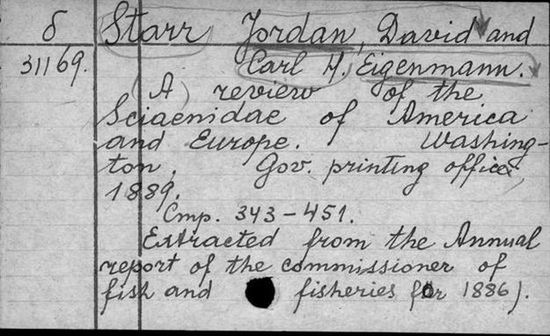 δ Starr Jordan, David and
31169. Carl H. Eigenmann.
(A) review of the
Sciaenidae of America
and Europe. Washing-
ton, Gov. printing office,
1889.
Стр. 343-451.
Extracted from the Annual
report of the commissioner of
fish and fisheries for 1886).